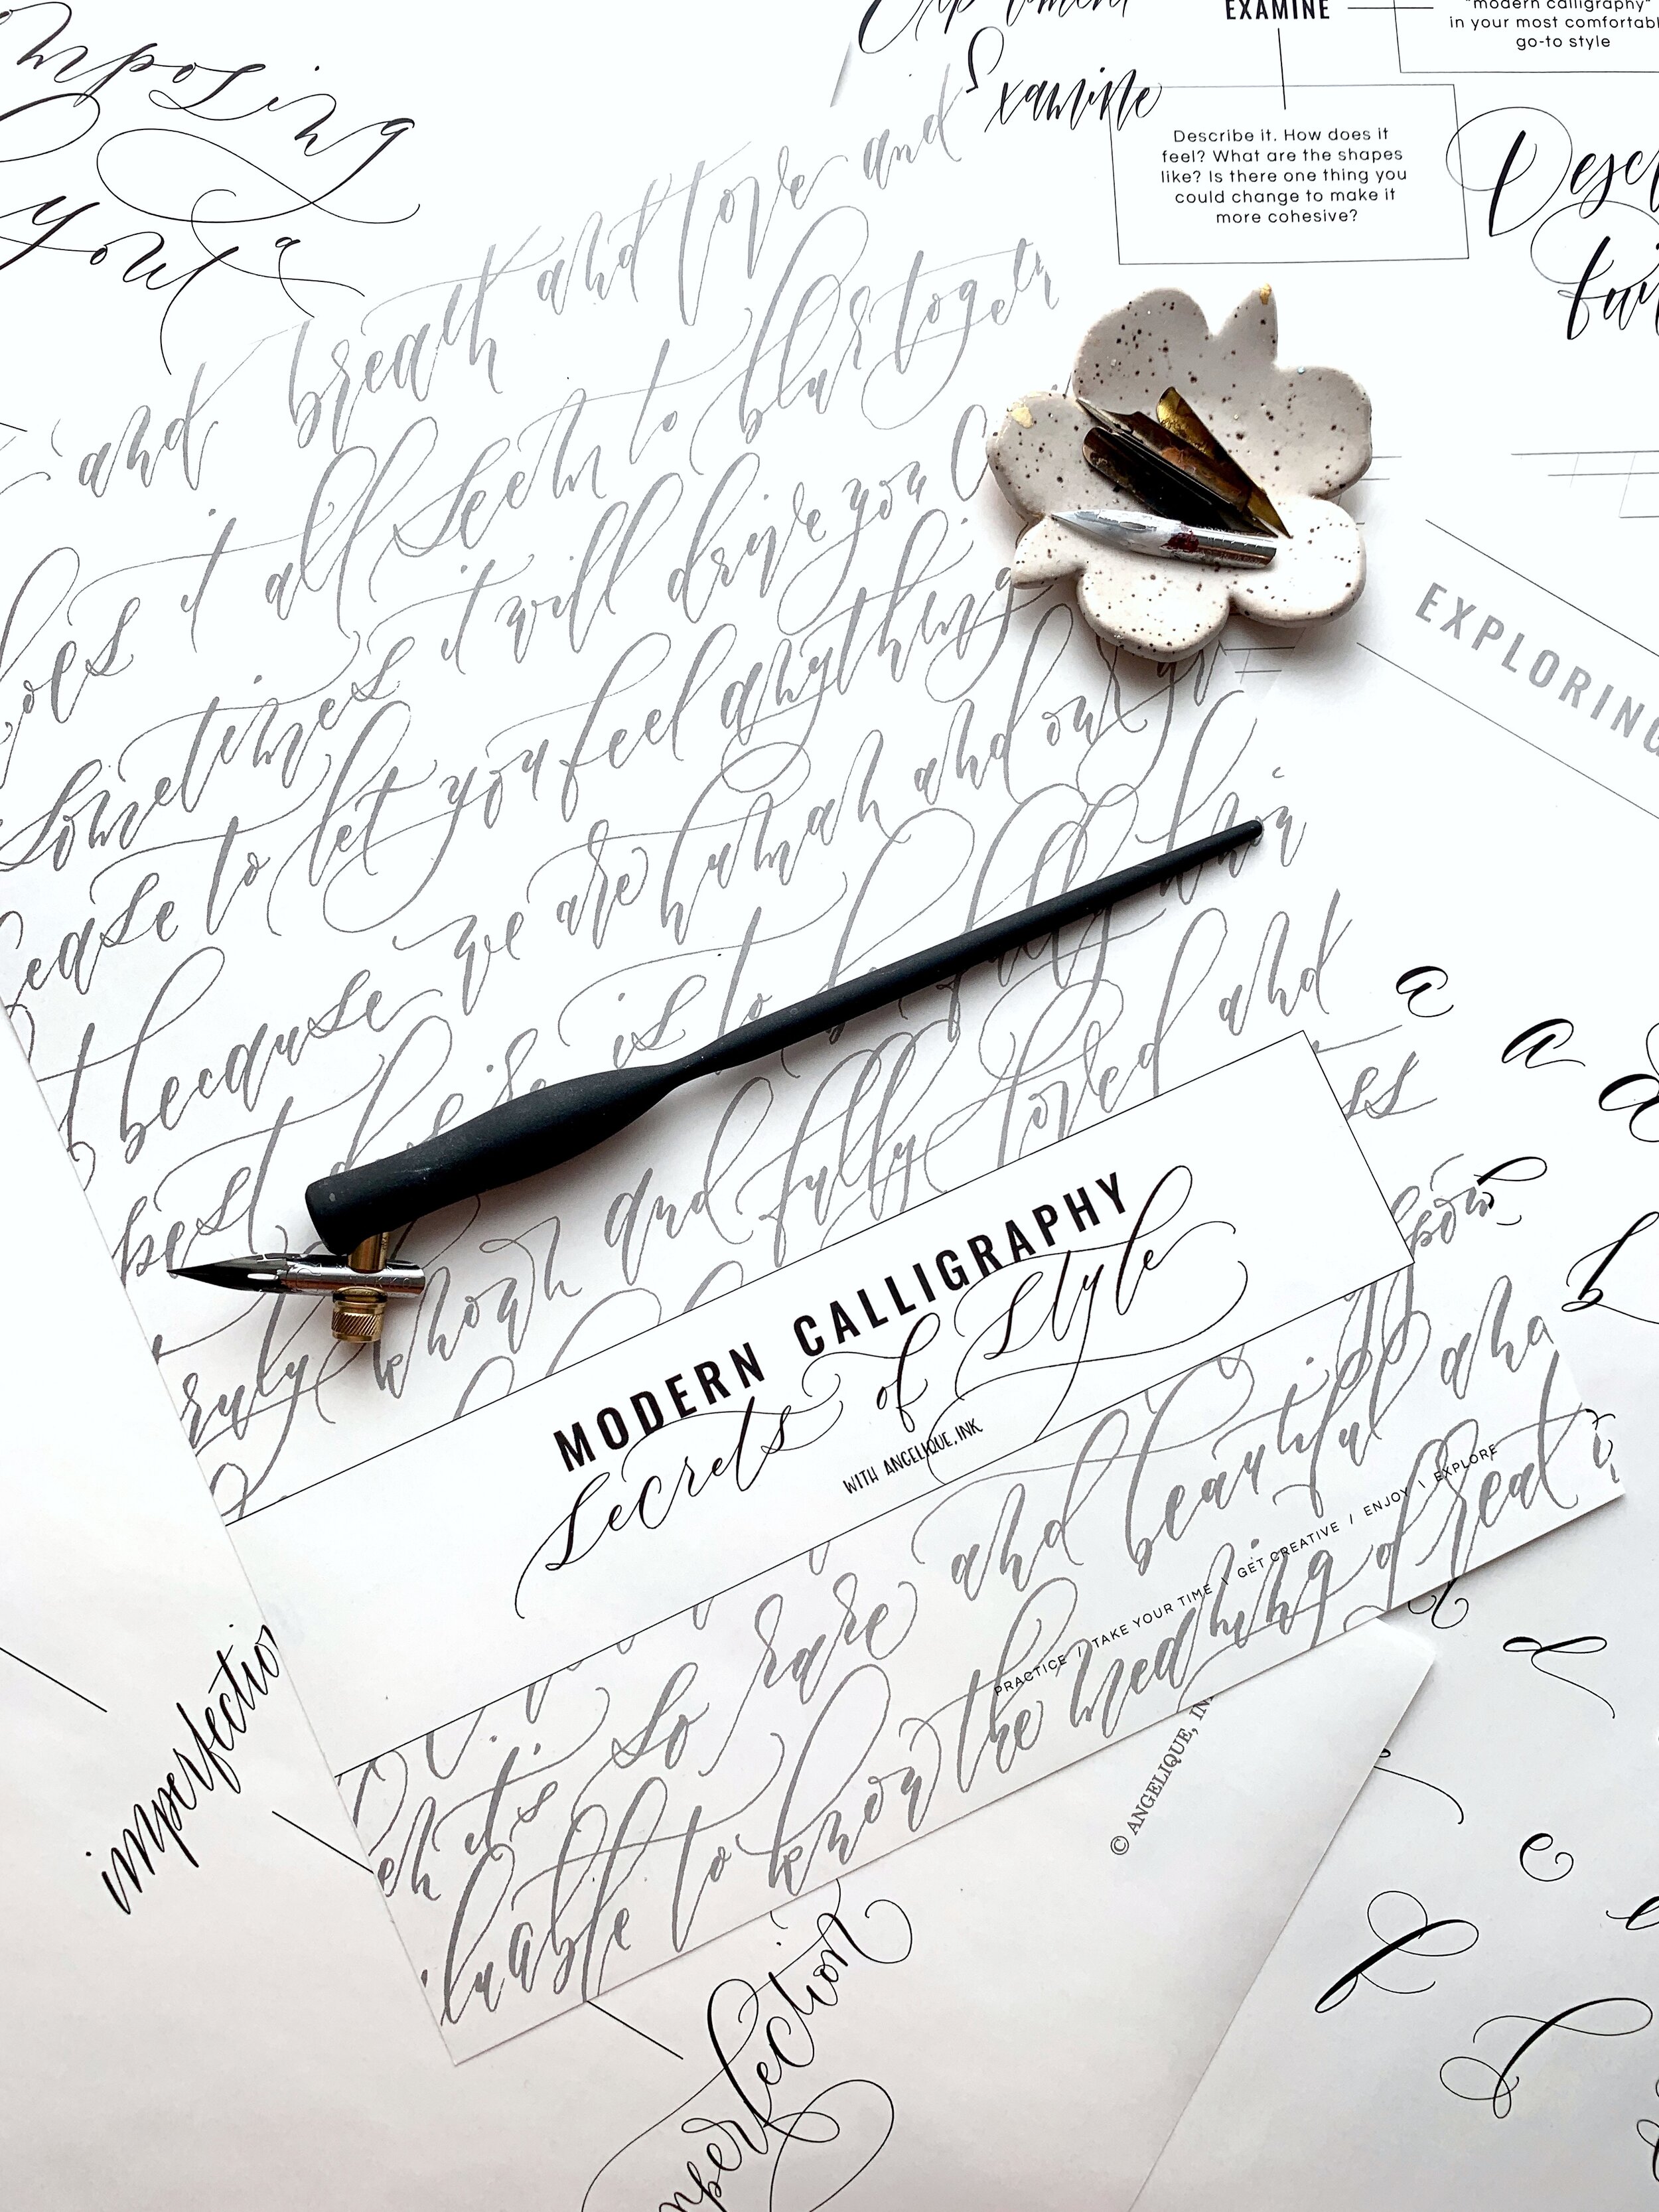 mposing
your
a
Examine
EXAMINE
"modern calligraphy"
in your most comfortable
go-to style
Describe it. How does it
feel? What are the shapes
like? Is there one thing you
could change to make it
more cohesive?
EXPLORING
and breath and love and
does it all seem to blur togeth
Sometimes it will drive you
cease to let you feel anything
because we are human and our
best desire is to be fully know
truly known and fully loved and
MODERN CALLIGRAPHY
Secrets of Style
WITH ANGELIQUE, INK
it's so rare and beautiful and
luable to know the meaning of real
PRACTICE / TAKE YOUR TIME \ GET CREATIVE / ENJOY \ EXPLORE
© ANGELIQUE, IN
imperfectio
mperfection
a
a
a
b
d
e